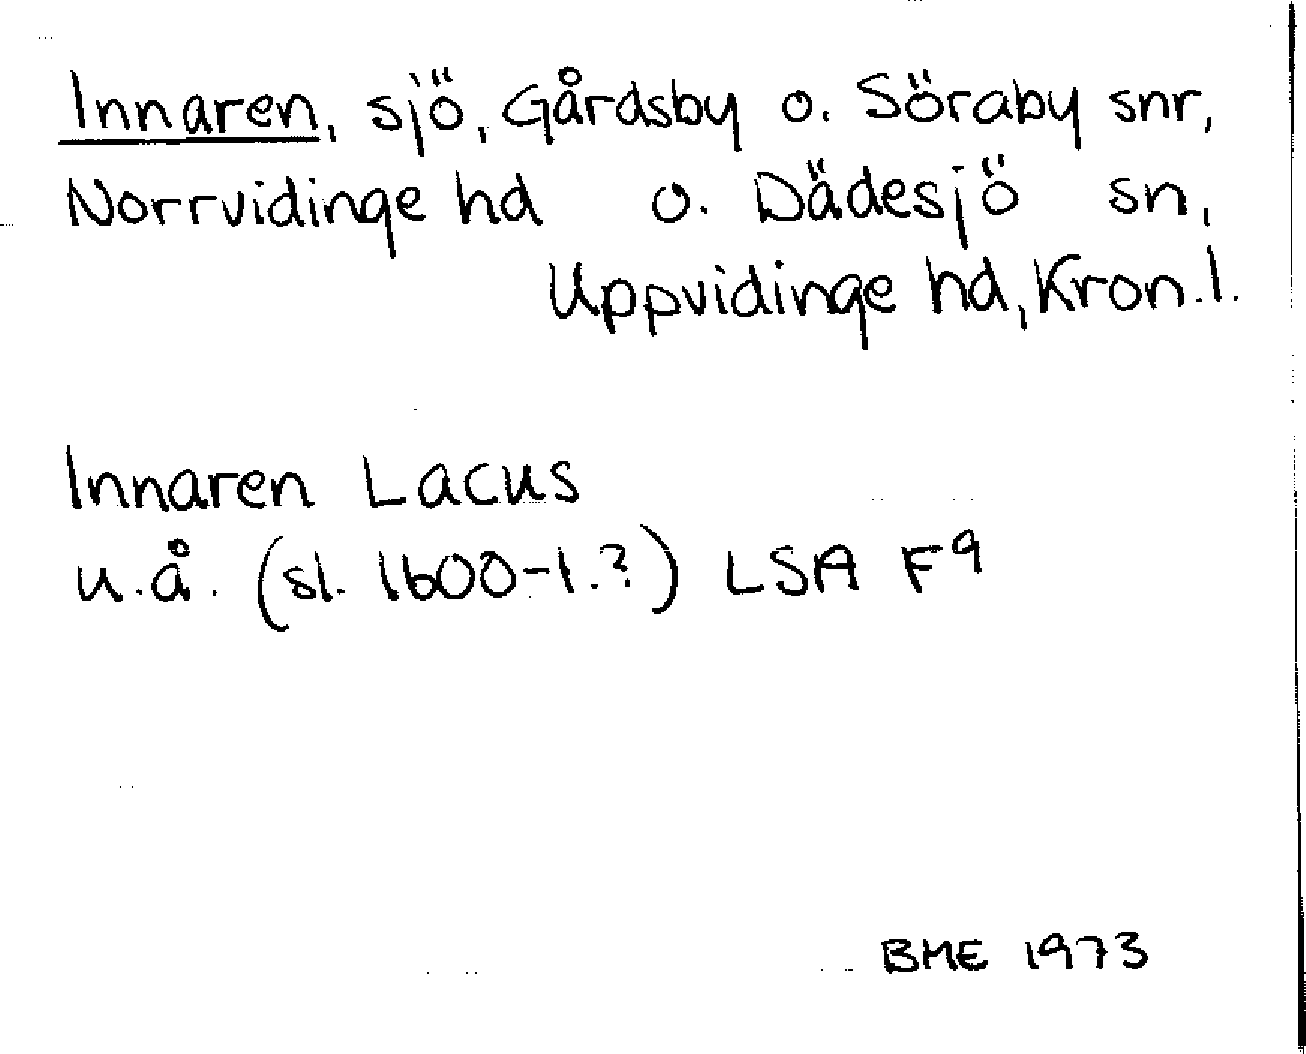 Innaren, sjö, Gårdsby o. Söraby snr,
Norrvidinge hd o. Dädesjö sn,
Uppvidinge hd, Kron.l.
Innaren Lacus
u.å. (sl. 1600-t.?) LSA F9
BME 1973